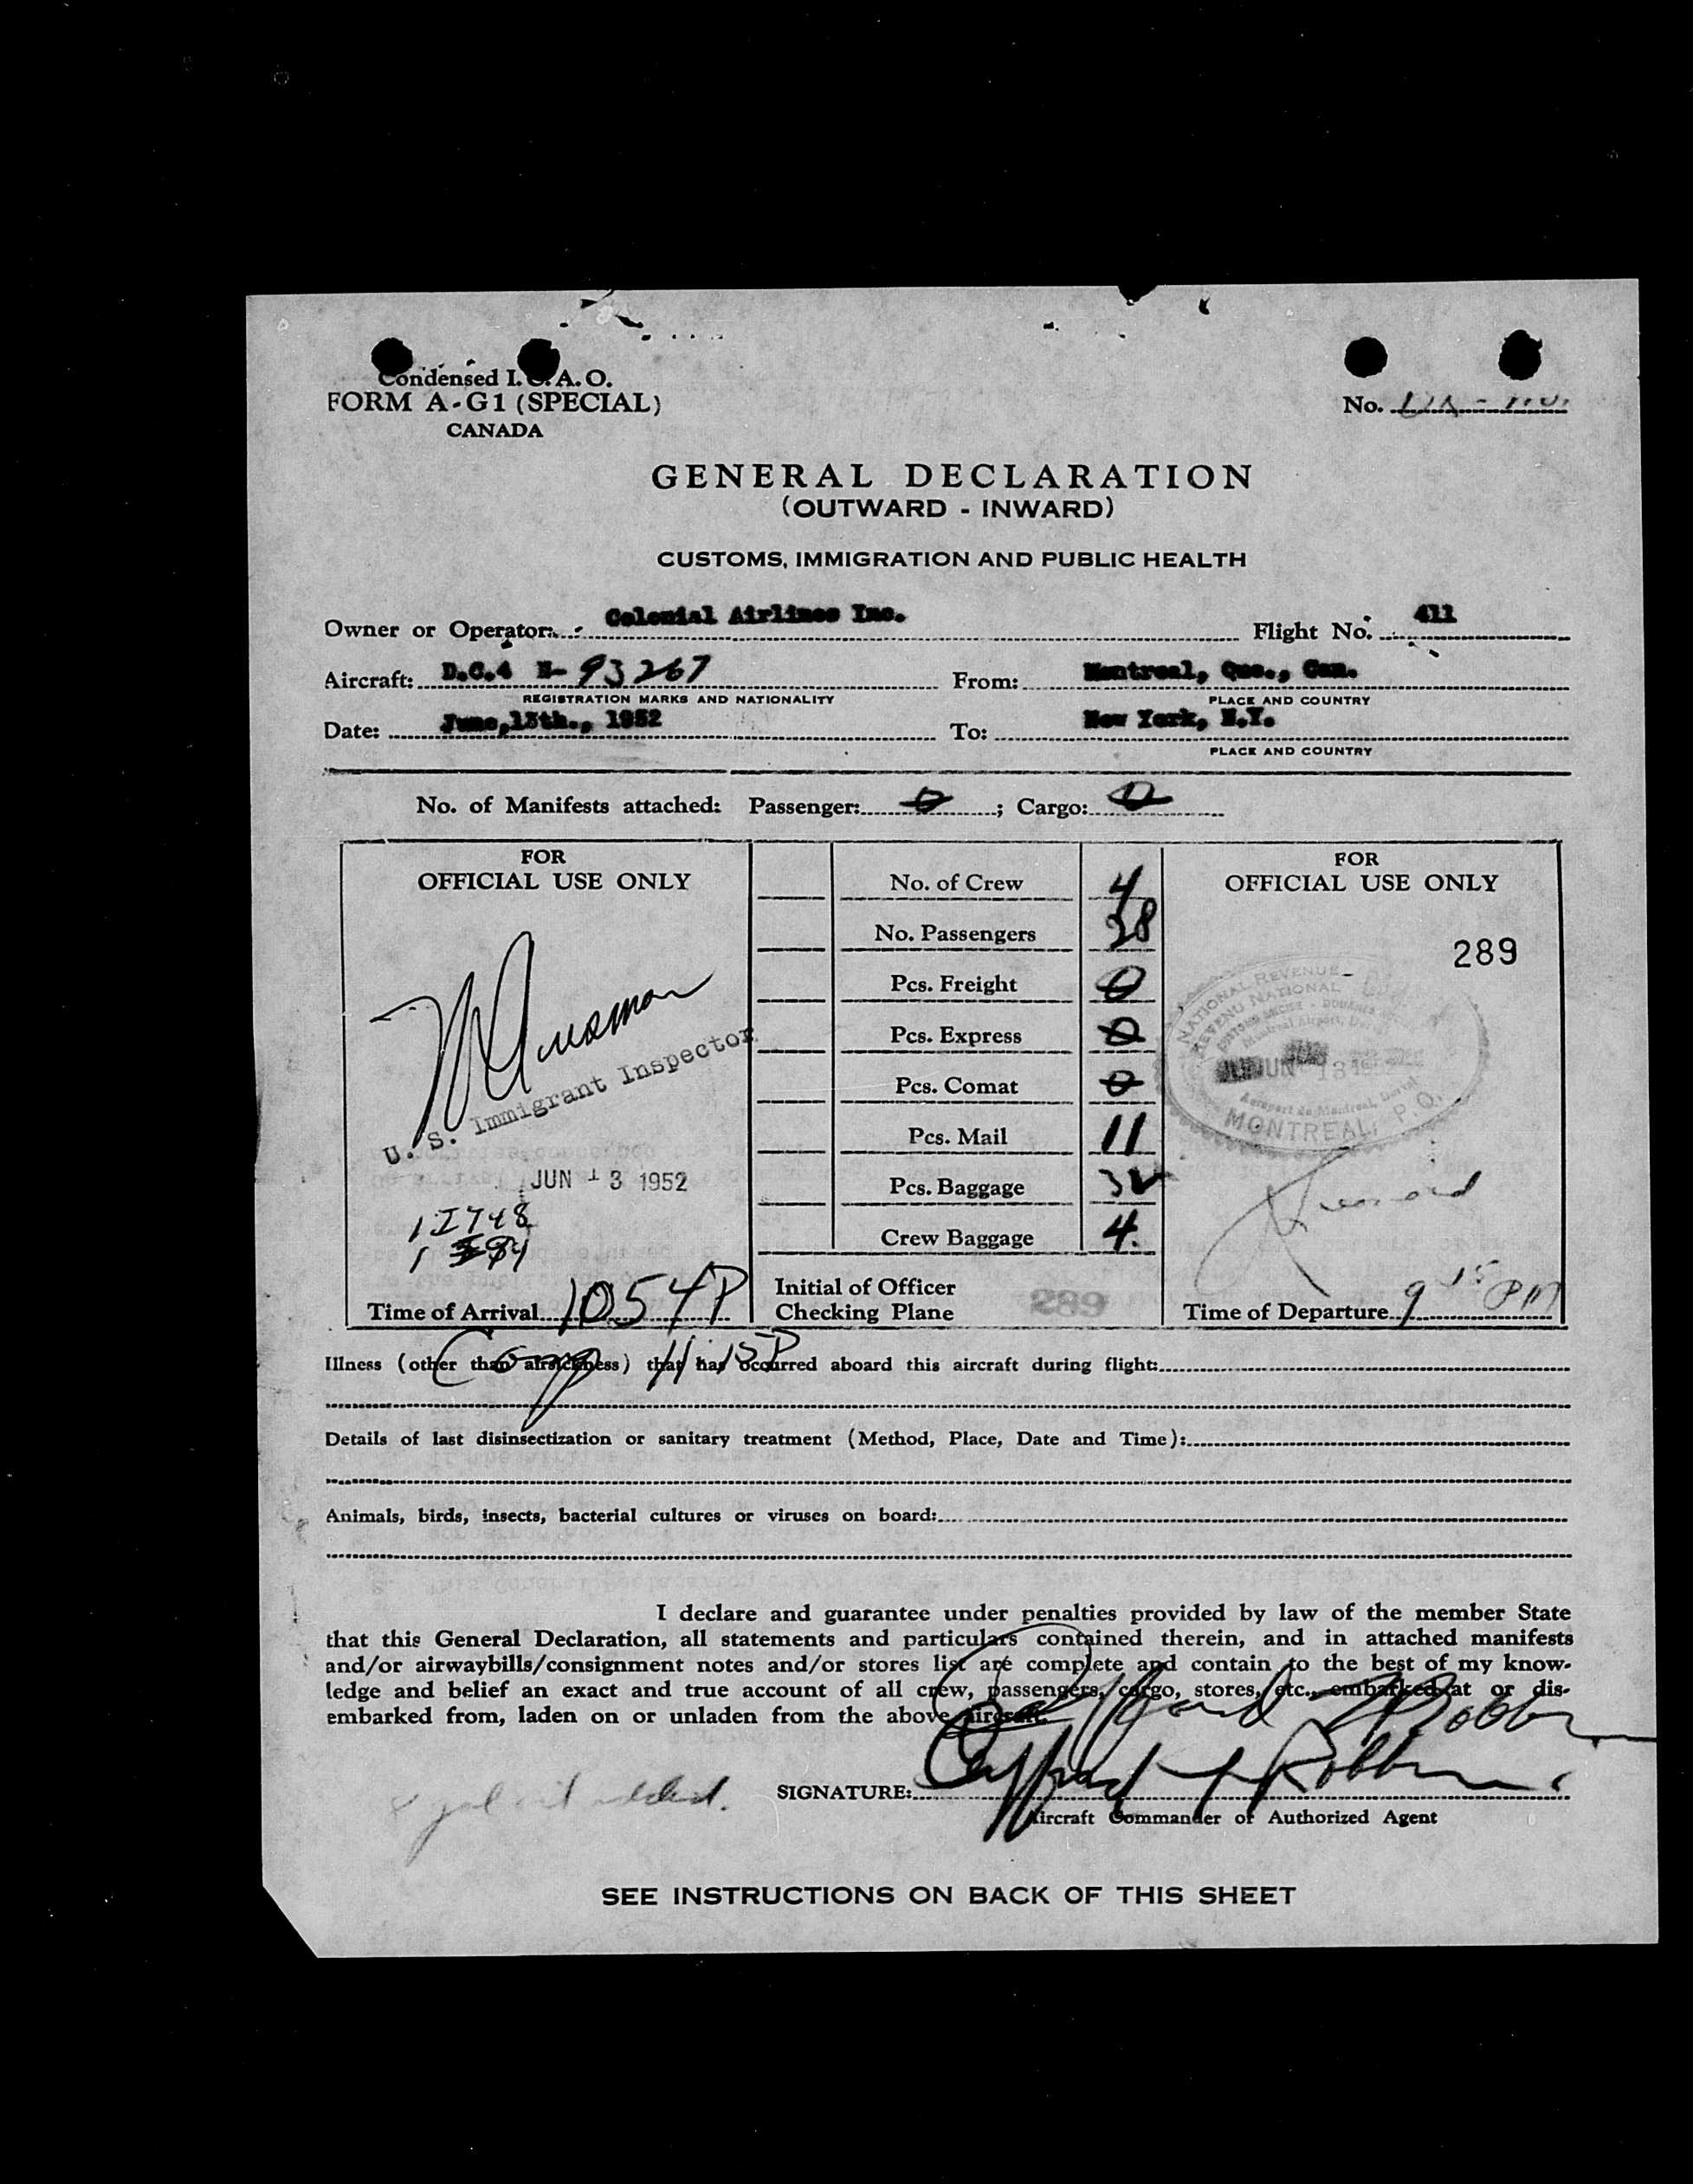 Condensed I.C.A.O.
FORM A-G1 (SPECIAL)
CANADA
No.
GENERAL DECLARATION
(OUTWARD - INWARD)
CUSTOMS, IMMIGRATION AND PUBLIC HEALTH
Owner or Operator: Colonial Airlines Inc. Flight No. 411
Aircraft: D.C.4 N- 93267 From: Montreal, Que., Can.
REGISTRATION MARKS AND NATIONALITY PLACE AND COUNTRY
Date: June,13th., 1952 To: New York, N.Y.
PLACE AND COUNTRY
No. of Manifests attached: Passenger: 0; Cargo: 0
FOR
OFFICIAL USE ONLY
U. S. Immigrant Inspector
JUN 13 1952
Time of Arrival 1054P
No. of Crew 4
No. Passengers 38
Pcs. Freight 0
Pcs. Express 0
Pcs. Comat 0
Pcs. Mail 11
Pcs. Baggage
Crew Baggage 4.
Initial of Officer
Checking Plane 289
FOR
OFFICIAL USE ONLY
289
NATIONAL REVENUE
REVENU NATIONAL
JUN 13
MONTREAL, P.Q.
Time of Departure 9 15 PM
Comp 11 15P
Illness (other than airsickness) that has occurred aboard this aircraft during flight:
Details of last disinsectization or sanitary treatment (Method, Place, Date and Time):
Animals, birds, insects, bacterial cultures or viruses on board:
I declare and guarantee under penalties provided by law of the member State
that this General Declaration, all statements and particulars contained therein, and in attached manifests
and/or airwaybills/consignment notes and/or stores list are complete and contain to the best of my know-
ledge and belief an exact and true account of all crew, passengers, cargo, stores, etc., embarked at or dis-
embarked from, laden on or unladen from the above aircraft.
SIGNATURE:
Aircraft Commander or Authorized Agent
SEE INSTRUCTIONS ON BACK OF THIS SHEET